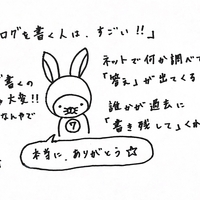 ログを書く人は、すごい!!」
ネットで何か調べて
「答え」が出てくる
誰かが過去に
「書き残して」くれ
書くの
大変!!
なんやで
7
本当に、ありがとう☆